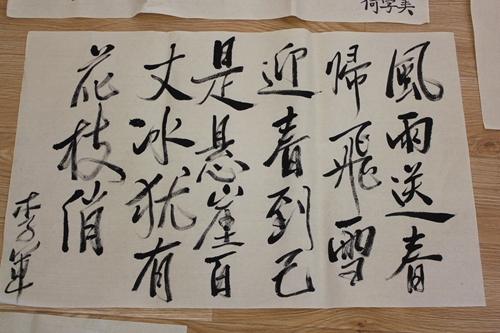 何学美
風雨送春
歸飛雪
迎春到已
是悬崖百
丈冰犹有
花枝俏
李